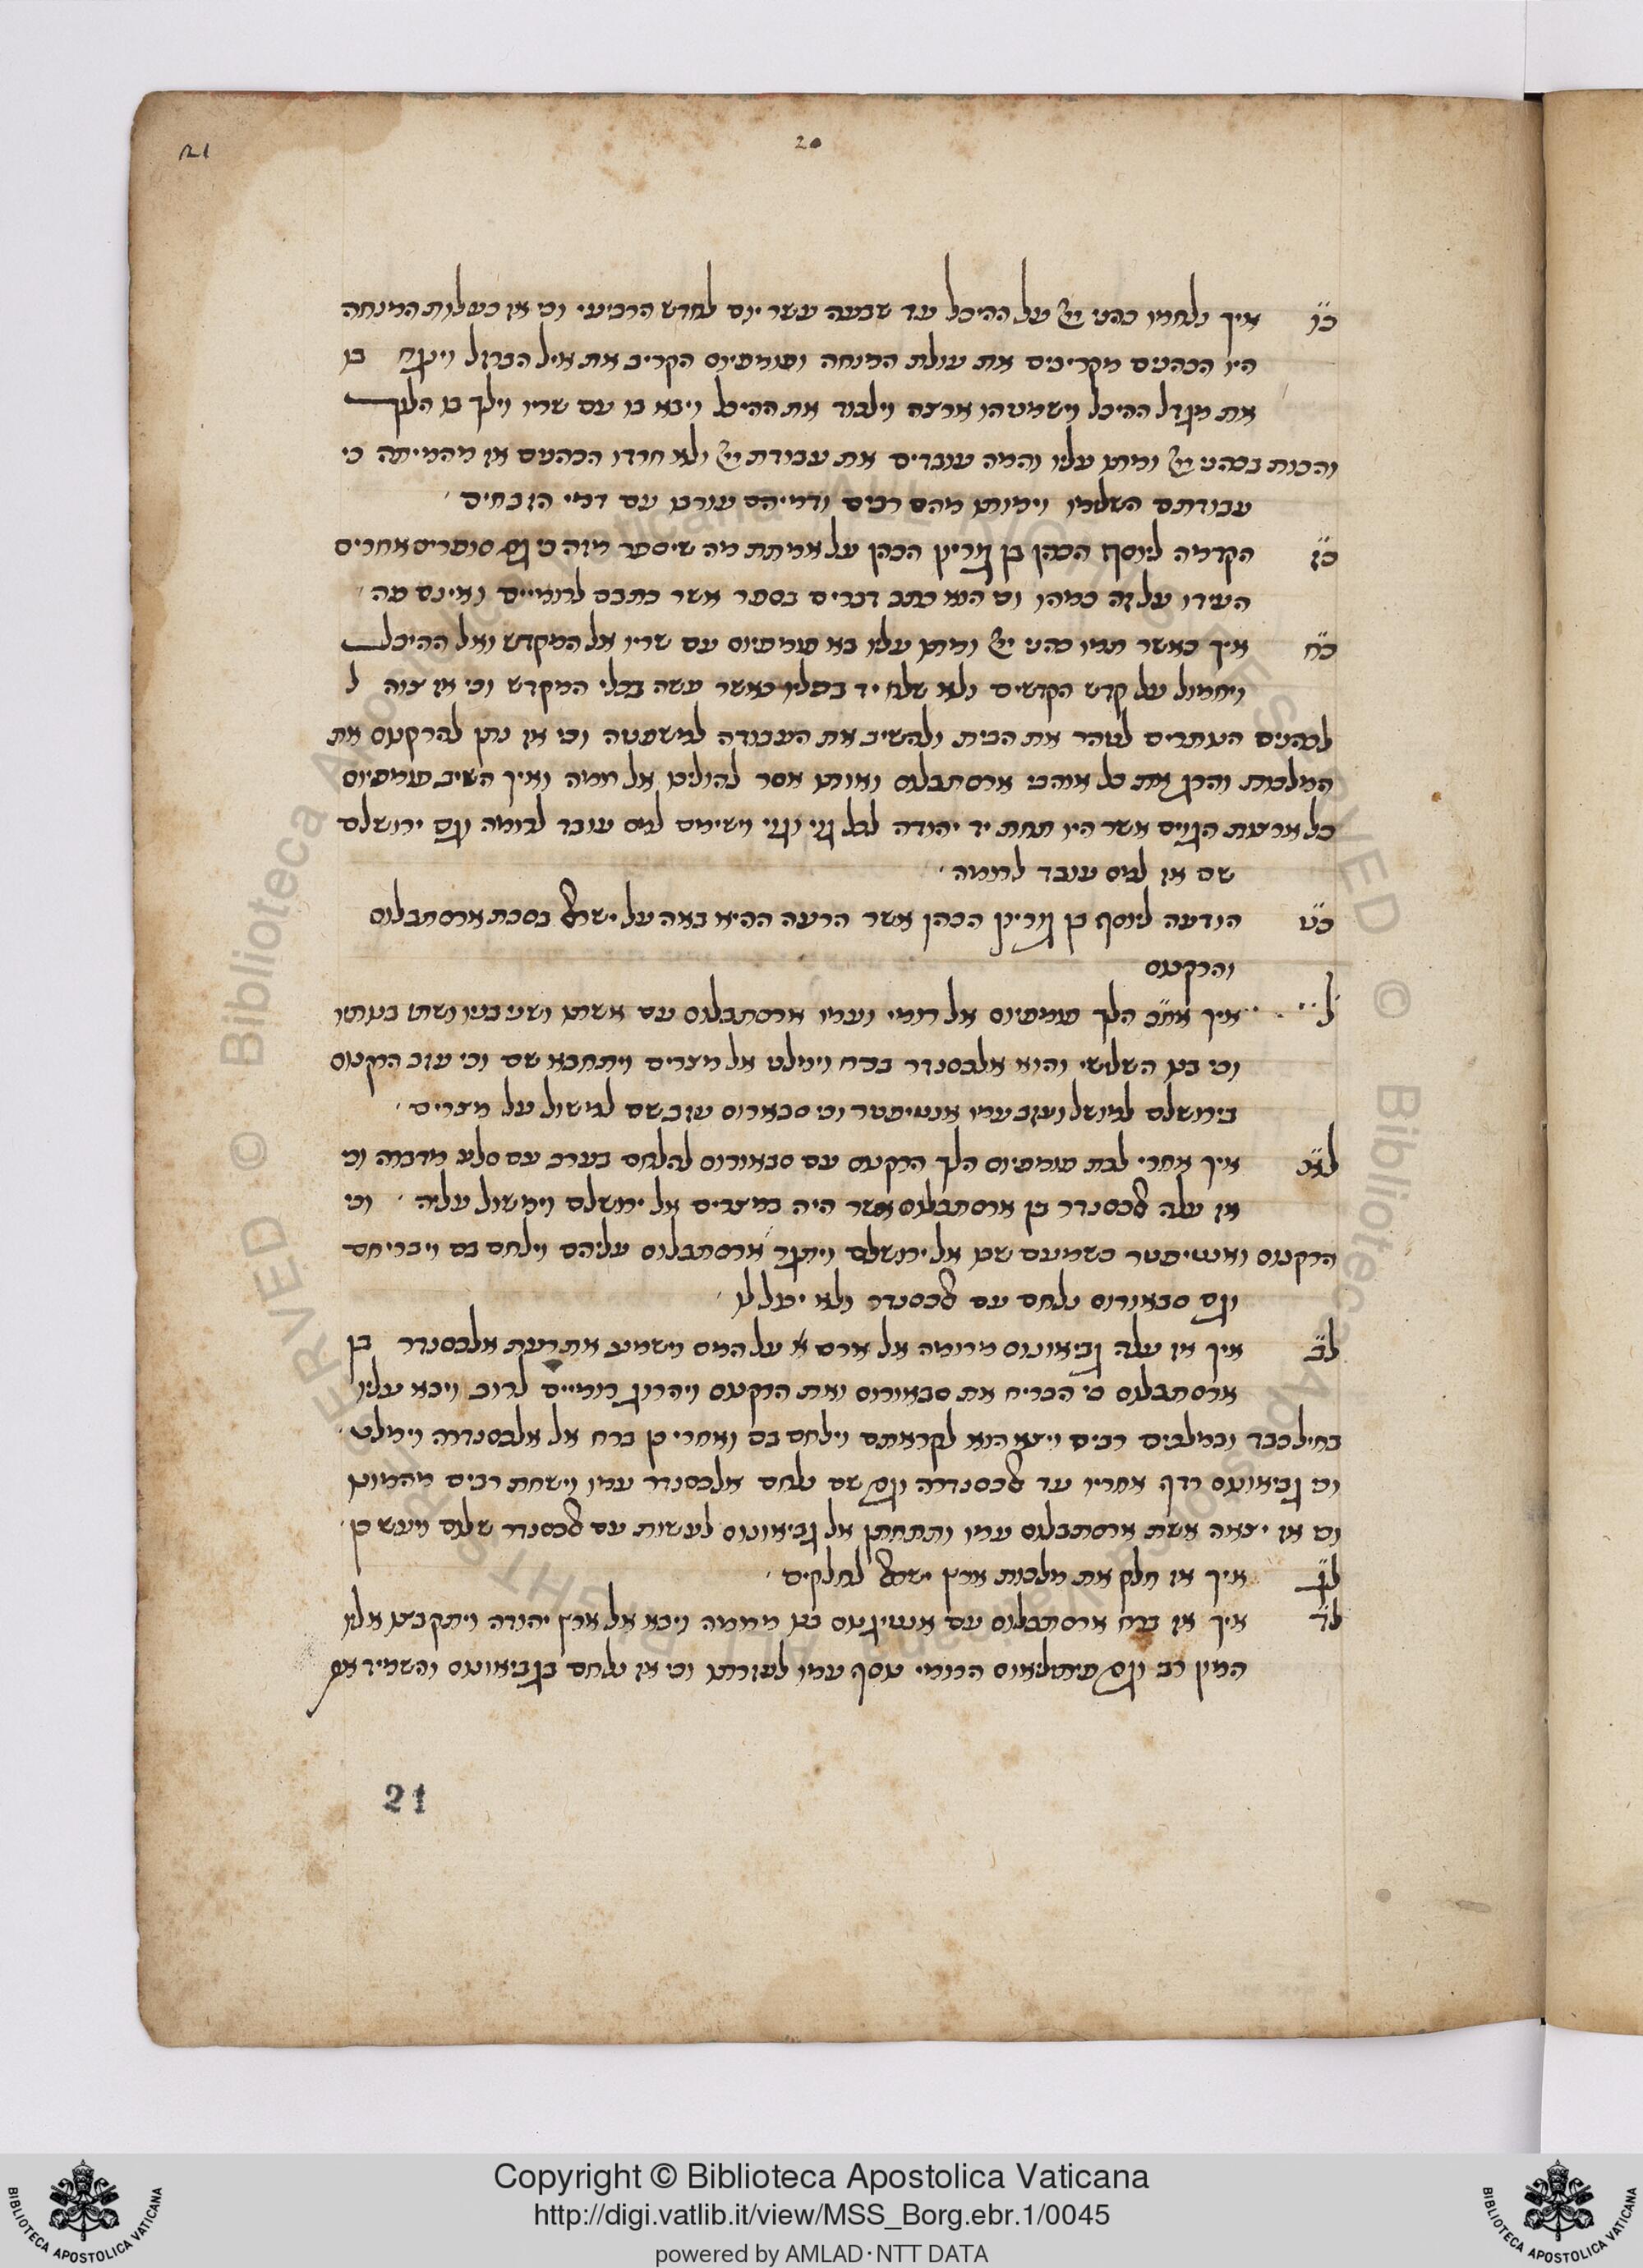 20
21
כ״ו איך נלחמו כהני ייי על ההיכל עד שבעה עשר יום לחדש הרביעי וכי אז כעלות המנחה
היו הכהנים מקריבים את עולת המנחה ופומפיוס הקריב את איל הברזל וינגח בו
את מגדל ההיכל וישמטהו ארצה וילכוד את ההיכל ויבא בו עם שריו וילך בו הלוך
והכות בכהני ייי ומיתו עליו והמה עובדים את עבודת ייי ולא חרדו הכהנים אז מהמיתה כי
עבודתם השלימו וימותו מהם רבים ודמיהם עורבו עם דמי הזבחים
כ״ז הקדמה ליוסף הכהן בן גוריון הכהן על אמתת מה שיספר מזה כי גם סופרים אחרים
העידו על זה כמהו וכי הוא כתב דברים בספר אשר כתבם לרומיים ואינם פה
כ״ח איך כאשר תמו כהני ייי ומיתו עליו בא פומפיוס עם שריו אל המקדש ואל ההיכל
ויחמול על קדש הקדשים ולא שלח יד בכליו כאשר עשה בכלי המקדש וכי אז צוה ל
לכהנים הנותרים לטהר את הבית ולהשיב את העבודה למשפטה וכי אז נתן להרקנוס את
המלכות והרג את כל אוהבי ארסתבלוס ואותו אסר להוליכו אל רומה ואיך השיב פומפיוס
כל ארצות הגוים אשר היו תחת יד יהודה לכל גוי וגוי וישימם למס עובד לרומה וגם ירושלם
שם אז למס עובד לרומה
כ״ט הודעה ליוסף בן גוריון הכהן אשר הרעה ההיא באה על ישראל בסבת ארסתבלוס
והרקנוס
ל איך אח״כ הלך פומפיוס אל רומי ועמו ארסתבלוס עם אשתו ושני בניו ושתי בנותיו
וכי בנו השלישי והוא אלכסנדר ברח וימלט אל מצרים ויתחבא שם וכי עזב הרקנוס
בירושלם למושל ועזב עמו אנטיפטר וכי סכאורוס עזב שם למשול על מצרים
ל״א איך אחרי לכת פומפיוס הלך הרקנוס עם סכאורוס להלחם בערב עם סלע מדברה וכי
אז עלה אלכסנדר בן ארסתבלוס אשר היה במצרים אל ירושלם וימשול עליה וכי
הרקנוס ואנטיפטר כשמעם שבו אל ירושלם ויתגר ארסתבלוס עליהם וילחם בם ויבריחם
וגם סכאורוס נלחם עם אלכסנדר ולא יוכל לו
ל״ב איך אז עלה גביאונוס מרומה אל ארם א על המס וישמע את רעת אלכסנדר בן
ארסתבלוס כי הבריח את סכאורוס ואת הרקנוס ויהרוג רומיים לרוב ויבא עליו
בחיל כבד ובמלכים רבים ויצא הוא לקראתם וילחם בם ואחרי כן ברח אל אלכסנדרה וימלט
וכי גביאונוס רדף אחריו עד אלכסנדרה וגם שם נלחם אלכסנדר עמו וישחת רבים מהמונו
וכי אז יצאה אשת ארסתבלוס עמו ותתחנן אל גביאונוס לעשות עם אלכסנדר שלום ויעש כן
ל״ג איך אז חלק את מלכות ארץ ישראל לחלקים
ל״ד איך אז ברח ארסתבלוס עם אנטיגנוס בנו מרומה ויבא אל ארץ יהודה ויתקבצו אליו
המון רב וגם פיתולאוס הרומי נוסף עמו לעזרתו וכי אז נלחם בגביאונוס והשמיד את
21
Copyright © Biblioteca Apostolica Vaticana
http://digi.vatlib.it/view/MSS_Borg.ebr.1/0045
powered by AMLAD·NTT DATA